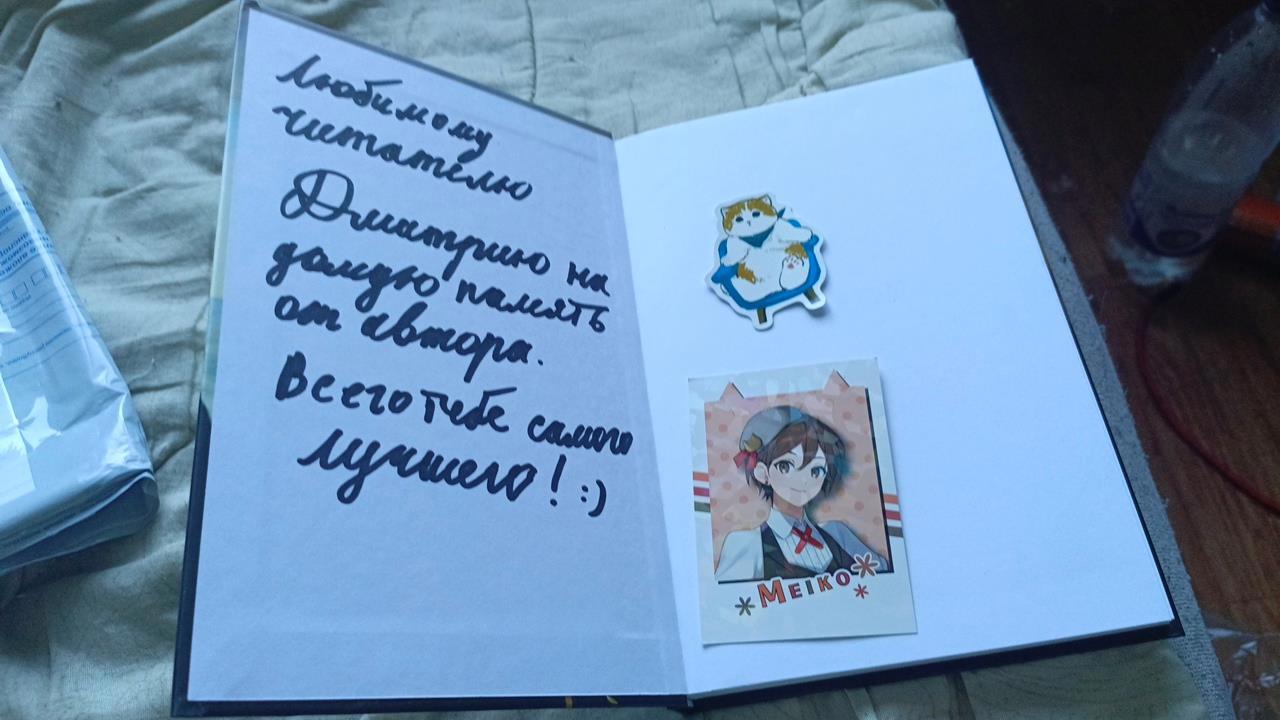 Любимому
читателю
Дмитрию на
долгую память
от автора.
Всего тебе самого
лучшего! :)
MEIKO